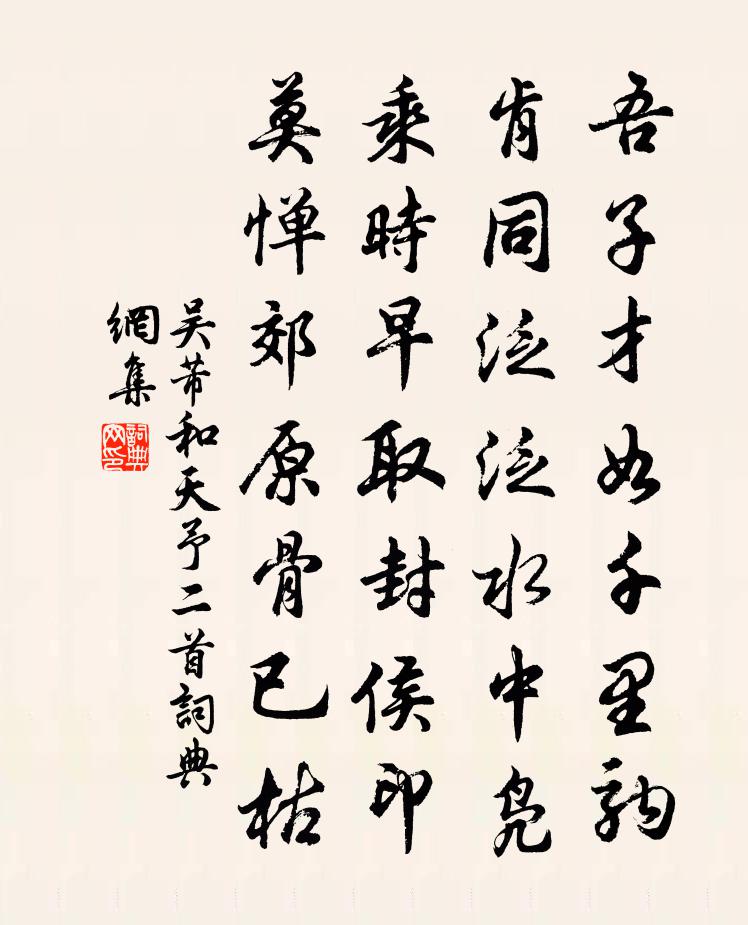 吾子才如千里駒
肯同泛泛水中鳧
乘時早取封侯印
莫惮郊原骨已枯
吳芾和天予二首詞典
網集
詞典
网印